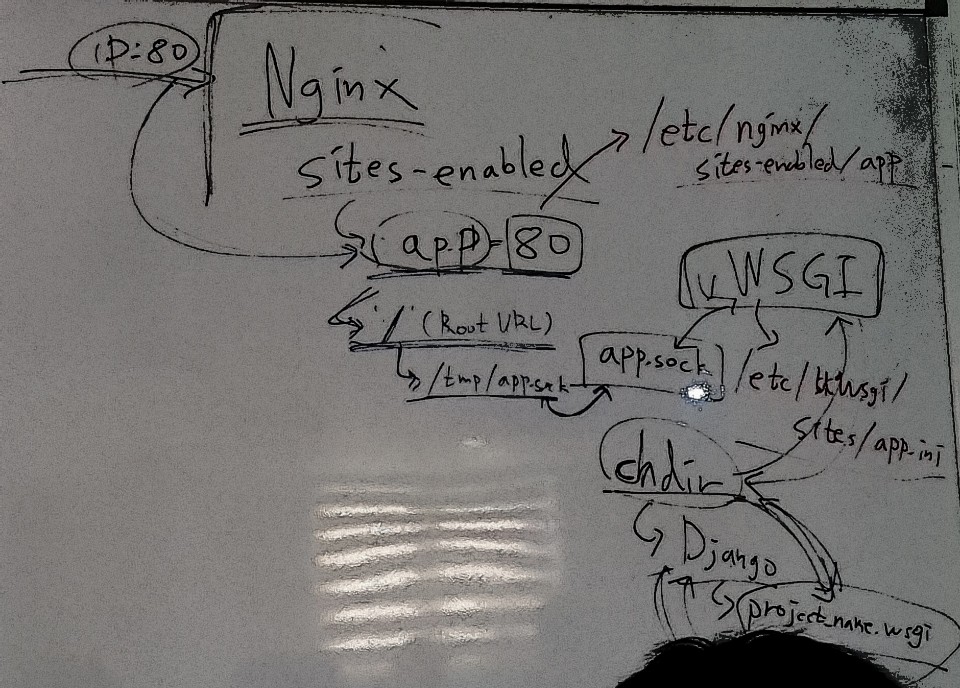 iP:80
Nginx
sites-enabled
/etc/nginx/
sites-enabled/app
app = 80
uWSGI
'/' (Root URL)
app.sock
/tmp/app.sock
/etc/
sites/app.ini
chdir
Django
project_name.wsgi